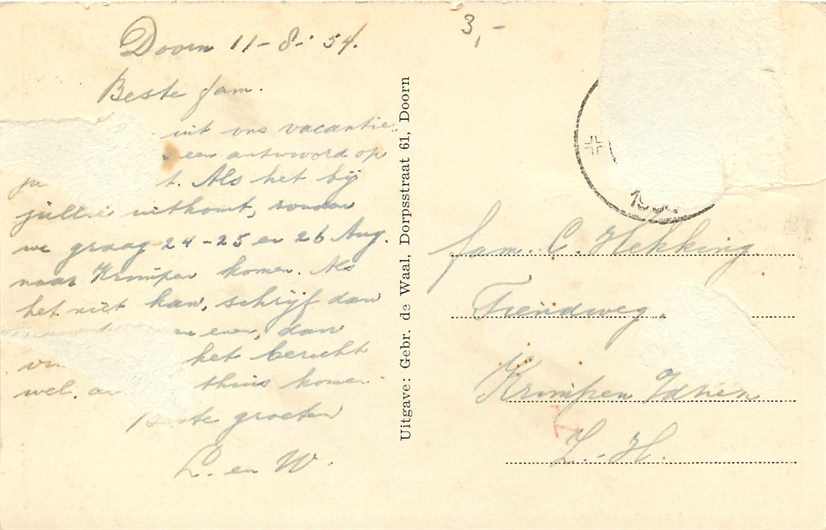 Doorn 11-8-'54.
3,-
Beste fam.
uit ons vacantie
een antwoord op
Als het bij
jullie uitkomt, zouden
we graag 24-25 en 26 Aug.
naar Krimpen komen. Als
het niet kan, schrijf dan
even, dan
het bericht
wel. thuis komen.
Beste groeten
L. en W.
Uitgave: Gebr. de Waal, Dorpsstraat 61, Doorn
fam. C. Hekking
Tiendweg.
Krimpen Yssen
Z.-H.